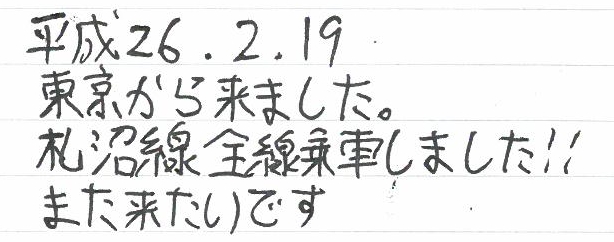 平成26.2.19
東京から来ました。
札沼線全線乗車しました!!
また来たいです